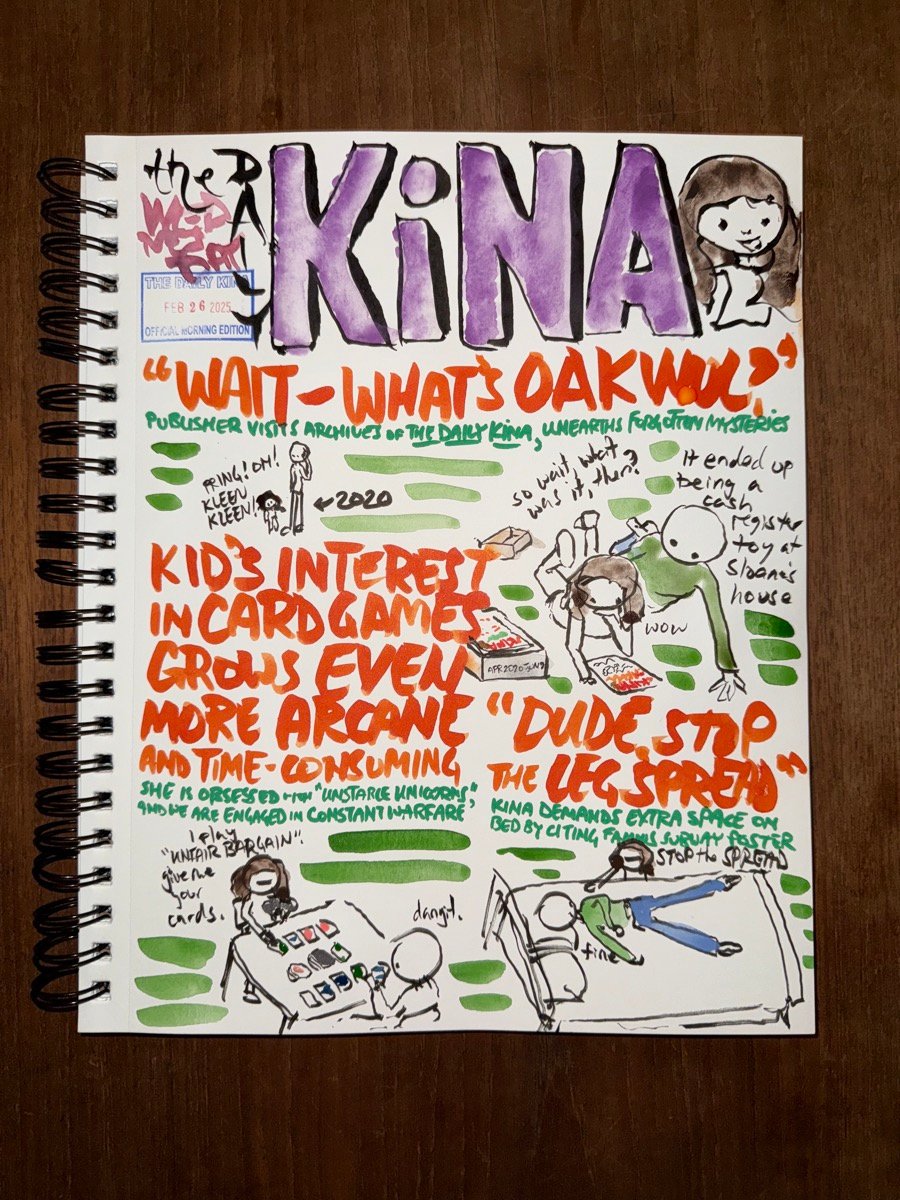 the DAILY
KiNA
THE DAILY KINA
FEB 26 2025
OFFICIAL MORNING EDITION
"WAIT - WHAT'S OAKWUL?"
PUBLISHER VISITS ARCHIVES OF THE DAILY KINA, UNEARTHS FORGOTTEN MYSTERIES
PRING! OM!
KLEEN
KLEEN!
←2020
so wait, what
was it, then?
It ended up
being a
cash
register
toy at
Sloane's
house
wow
APR 2020-JUN 2
KID'S INTEREST
IN CARD GAMES
GROWS EVEN
MORE ARCANE
AND TIME-CONSUMING
SHE IS OBSESSED WITH "UNSTABLE UNICORNS",
AND WE ARE ENGAGED IN CONSTANT WARFARE
I play
"UNFAIR BARGAIN".
give me
your
cards.
dangit.
"DUDE, STOP
THE LEG SPREAD"
KINA DEMANDS EXTRA SPACE ON
BED BY CITING FAMOUS SUBWAY POSTER
STOP the SPREAD
fine